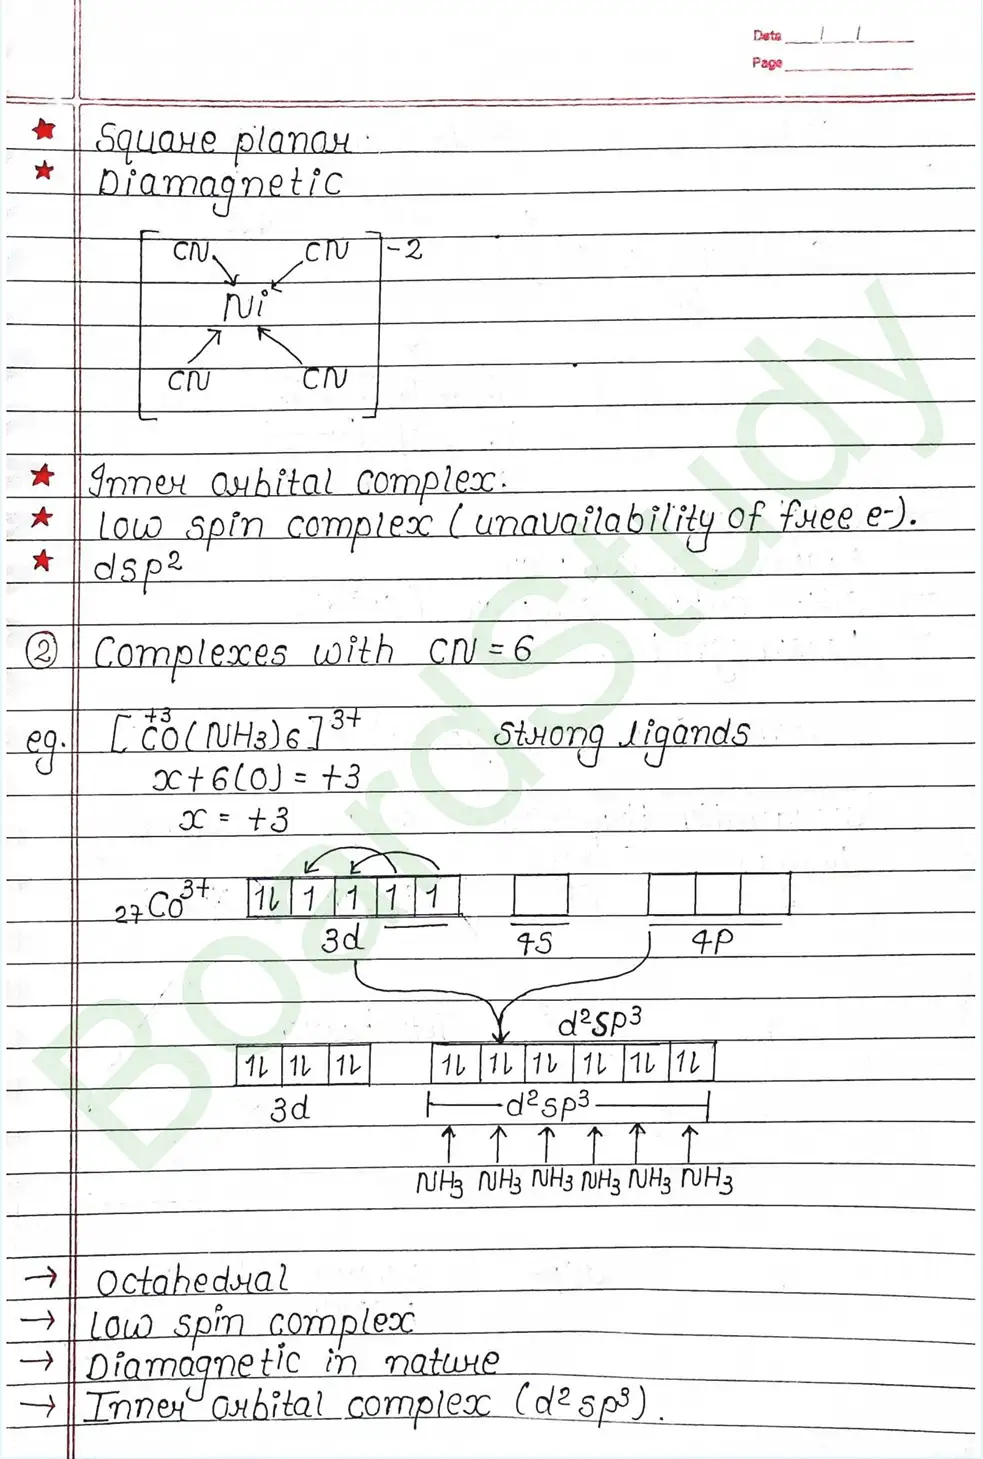 Date / /
Page
Square planar.
Diamagnetic
[ CN CN ]-2
Ni
CN CN
Inner orbital complex.
Low spin complex (unavailability of free e-).
dsp²
② Complexes with CN = 6
eg. [CO(NH3)6]3+ strong ligands
+3
x + 6(0) = +3
x = +3
27Co3+ 1l 1 1 1 1
3d 4s 4p
d²sp³
1l 1l 1l 1l 1l 1l 1l 1l 1l
3d d²sp³
NH3 NH3 NH3 NH3 NH3 NH3
→ Octahedral
→ Low spin complex
→ Diamagnetic in nature
→ Inner orbital complex (d²sp³).
BoardStudy